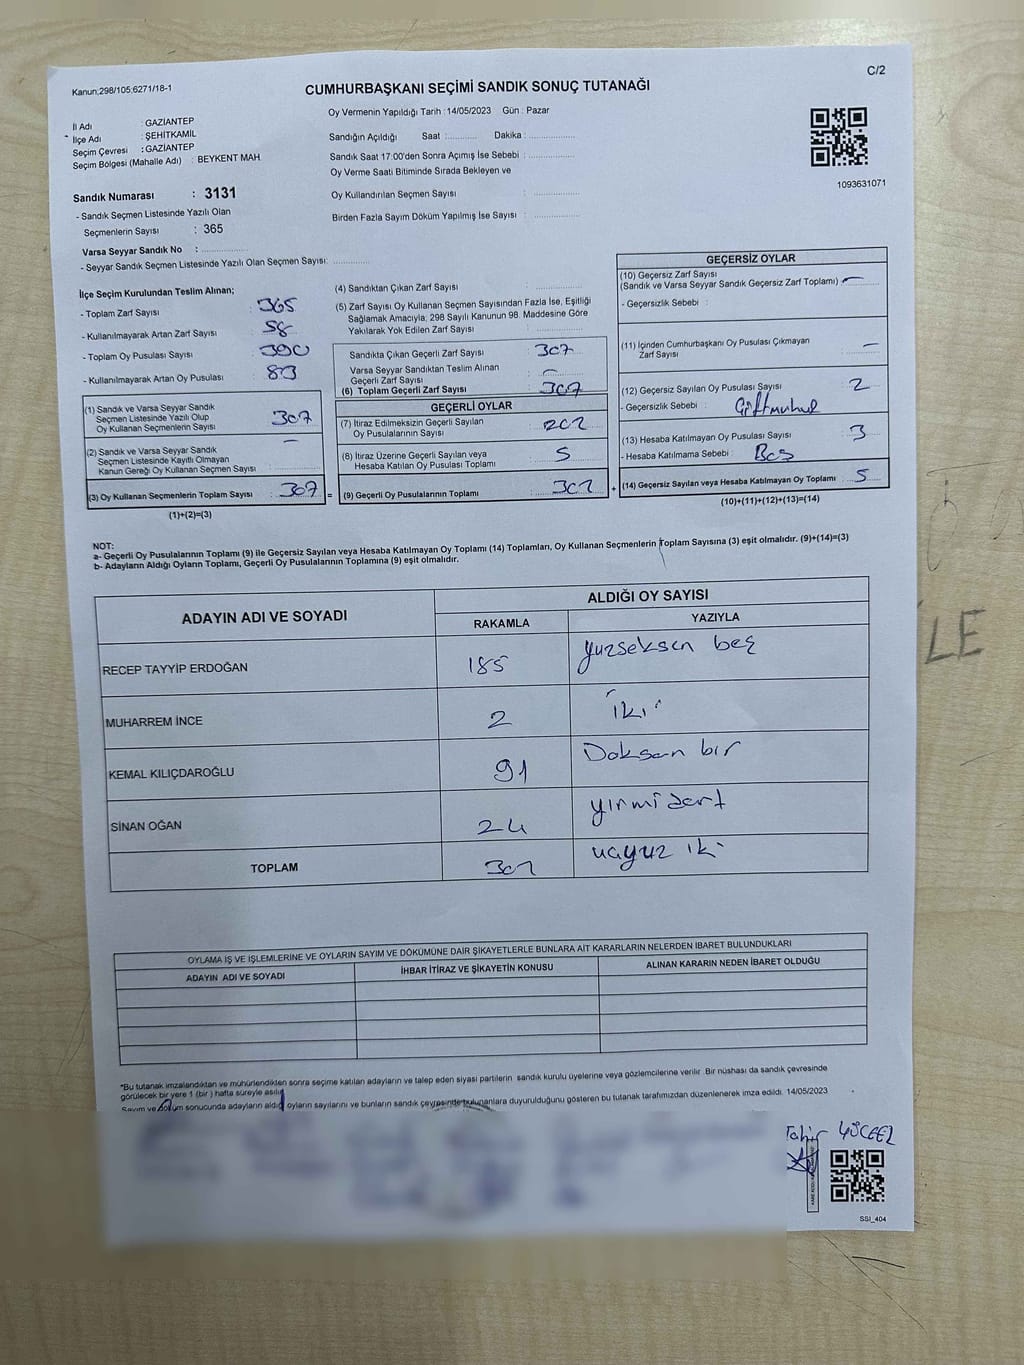 C/2
Kanun:298/105;6271/18-1
CUMHURBAŞKANI SEÇİMİ SANDIK SONUÇ TUTANAĞI
Oy Vermenin Yapıldığı Tarih : 14/05/2023 Gün : Pazar
İl Adı : GAZİANTEP
İlçe Adı : ŞEHİTKAMİL
Seçim Çevresi : GAZİANTEP
Seçim Bölgesi (Mahalle Adı) : BEYKENT MAH
Sandığın Açıldığı Saat : Dakika :
Sandık Saat 17:00'den Sonra Açımış İse Sebebi :
Oy Verme Saati Bitiminde Sırada Bekleyen ve
Oy Kullandırılan Seçmen Sayısı :
Birden Fazla Sayım Döküm Yapılmış İse Sayısı :
1093631071
Sandık Numarası : 3131
- Sandık Seçmen Listesinde Yazılı Olan
Seçmenlerin Sayısı : 365
Varsa Seyyar Sandık No :
- Seyyar Sandık Seçmen Listesinde Yazılı Olan Seçmen Sayısı:
İlçe Seçim Kurulundan Teslim Alınan;
- Toplam Zarf Sayısı : 365
- Kullanılmayarak Artan Zarf Sayısı : 58
- Toplam Oy Pusulası Sayısı : 390
- Kullanılmayarak Artan Oy Pusulası : 83
(1) Sandık ve Varsa Seyyar Sandık
Seçmen Listesinde Yazılı Olup
Oy Kullanan Seçmenlerin Sayısı : 307
(2) Sandık ve Varsa Seyyar Sandık
Seçmen Listesinde Kayıtlı Olmayan
Kanun Gereği Oy Kullanan Seçmen Sayısı : –
(3) Oy Kullanan Seçmenlerin Toplam Sayısı : 307
(1)+(2)=(3)
(4) Sandıktan Çıkan Zarf Sayısı :
(5) Zarf Sayısı Oy Kullanan Seçmen Sayısından Fazla İse, Eşitliği
Sağlamak Amacıyla, 298 Sayılı Kanunun 98. Maddesine Göre
Yakılarak Yok Edilen Zarf Sayısı :
Sandıkta Çıkan Geçerli Zarf Sayısı : 307
Varsa Seyyar Sandıktan Teslim Alınan
Geçerli Zarf Sayısı : –
(6) Toplam Geçerli Zarf Sayısı : 307
GEÇERLİ OYLAR
(7) İtiraz Edilmeksizin Geçerli Sayılan
Oy Pusulalarının Sayısı :
(8) İtiraz Üzerine Geçerli Sayılan veya
Hesaba Katılan Oy Pusulası Toplamı : 5
= (9) Geçerli Oy Pusulalarının Toplamı : 302 +
GEÇERSİZ OYLAR
(10) Geçersiz Zarf Sayısı
(Sandık ve Varsa Seyyar Sandık Geçersiz Zarf Toplamı) : –
- Geçersizlik Sebebi :
(11) İçinden Cumhurbaşkanı Oy Pusulası Çıkmayan
Zarf Sayısı : –
(12) Geçersiz Sayılan Oy Pusulası Sayısı : 2
- Geçersizlik Sebebi :
(13) Hesaba Katılmayan Oy Pusulası Sayısı : 3
- Hesaba Katılmama Sebebi : Boş
(14) Geçersiz Sayılan veya Hesaba Katılmayan Oy Toplamı : 5
(10)+(11)+(12)+(13)=(14)
NOT:
a- Geçerli Oy Pusulalarının Toplamı (9) ile Geçersiz Sayılan veya Hesaba Katılmayan Oy Toplamı (14) Toplamları, Oy Kullanan Seçmenlerin Toplam Sayısına (3) eşit olmalıdır. (9)+(14)=(3)
b- Adayların Aldığı Oyların Toplamı, Geçerli Oy Pusulalarının Toplamına (9) eşit olmalıdır.
ADAYIN ADI VE SOYADI
ALDIĞI OY SAYISI
RAKAMLA YAZIYLA
RECEP TAYYİP ERDOĞAN 185 yüzseksen beş
MUHARREM İNCE 2 iki
KEMAL KILIÇDAROĞLU 91 Doksan bir
SİNAN OĞAN 24 yirmi dört
TOPLAM 302 üçyüz iki
OYLAMA İŞ VE İŞLEMLERİNE VE OYLARIN SAYIM VE DÖKÜMÜNE DAİR ŞİKAYETLERLE BUNLARA AİT KARARLARIN NELERDEN İBARET BULUNDUKLARI
ADAYIN ADI VE SOYADI İHBAR İTİRAZ VE ŞİKAYETİN KONUSU ALINAN KARARIN NEDEN İBARET OLDUĞU
*Bu tutanak imzalandıktan ve mühürlendikten sonra seçime katılan adayların ve talep eden siyasi partilerin sandık kurulu üyelerine veya gözlemcilerine verilir. Bir nüshası da sandık çevresinde
görülecek bir yere 1 (bir) hafta süreyle asılır.
Sayım ve döküm sonucunda adayların aldığı oyların sayılarını ve bunların sandık çevresinde bulunanlara duyurulduğunu gösteren bu tutanak tarafımızdan düzenlenerek imza edildi. 14/05/2023
Tahir YÜCEEL
SSI_404
LE